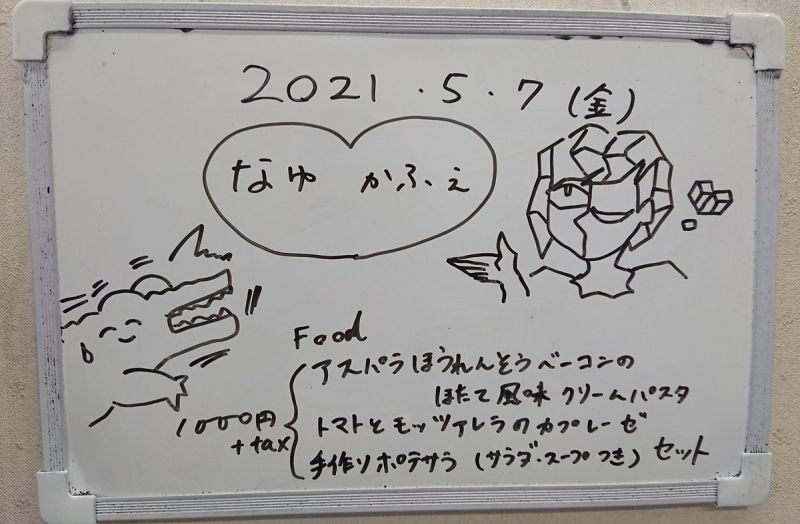 2021.5.7(金)
なゆ かふぇ
Food
アスパラほうれんそうベーコンの
ほたて風味クリームパスタ
1000円
+tax
トマトとモッツァレラのカプレーゼ
手作りポテサラ (サラダ・スープつき) セット